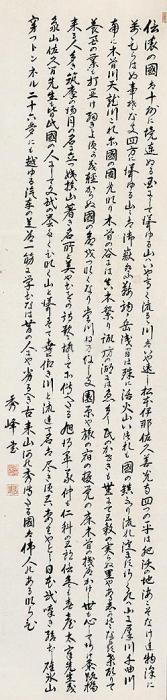 信濃の國は十州に境連ぬる國にして聳ゆる山はいや高く流るゝ川はいや遠し松本伊那佐久善光寺四つの平は肥沃の地海こそなけれ物さわに
万ず足らわぬ事ぞなき四方に聳ゆる山々は御嶽乗鞍駒ヶ岳浅間は殊に活火山いづれも国の鎮めなり流れ淀まずゆく水は北に犀川千曲川
南に木曽川天龍川これ亦國の固めなり木曽の谷には真木茂り諏訪の湖には魚多し民のかせぎも豊かにて五穀の実らぬ里やあるしかのみならず桑取りて
養蚕の業の打ひらけ細きよすがも軽からぬ國の命を繋ぐなり尋ねまほしき園原や旅の宿りの寝覚の床木曽の桟かけし世も心してゆけ久米路橋
来る人多き筑摩の湯月の名に立つ姨捨山著き名所とが詩歌に詠てぞ傳へたる旭将軍義仲も仁科の五郎信盛も春臺太宰先生も
象山佐久間先生も皆此國の人にして文武の誉たぐひなく山と聳えて世に仰ぎ川と流れて名は尽ず吾妻はやとし日本武嘆き給ひし碓氷山
穿つトンネル二十六夢にも越ゆる汽車の道道一筋に学びなば昔の人にや劣るべき古来山河の秀でたる國は偉人のある習ひ
秀峰書